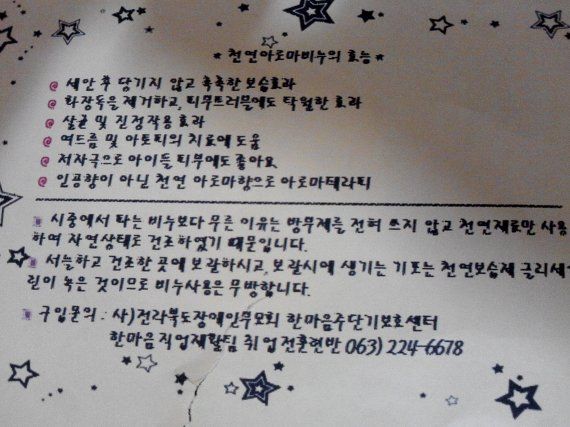 * 천연아로마비누의 효능 *
@ 세안 후 당기지 않고 촉촉한 보습효과
@ 화장독을 제거하고, 피부트러블에도 탁월한 효과
@ 살균 및 진정작용 효과
@ 여드름 및 아토피의 치료에 도움
@ 저자극으로 아이들 피부에도 좋아요
@ 인공향이 아닌 천연 아로마향으로 아로마테라피
시중에서 파는 비누보다 무른 이유는 방부제를 전혀 쓰지 않고 천연재료만 사용
하여 자연상태로 건조하였기 때문입니다.
서늘하고 건조한 곳에 보관하시고, 보관시에 생기는 기포는 천연보습제 글리세
린이 녹은 것이므로 비누사용은 무방합니다.
구입문의 : 사)전라북도장애인부모회 한마음주단기보호센터
한마음직업재활팀 취업전훈련반 063) 224-6678